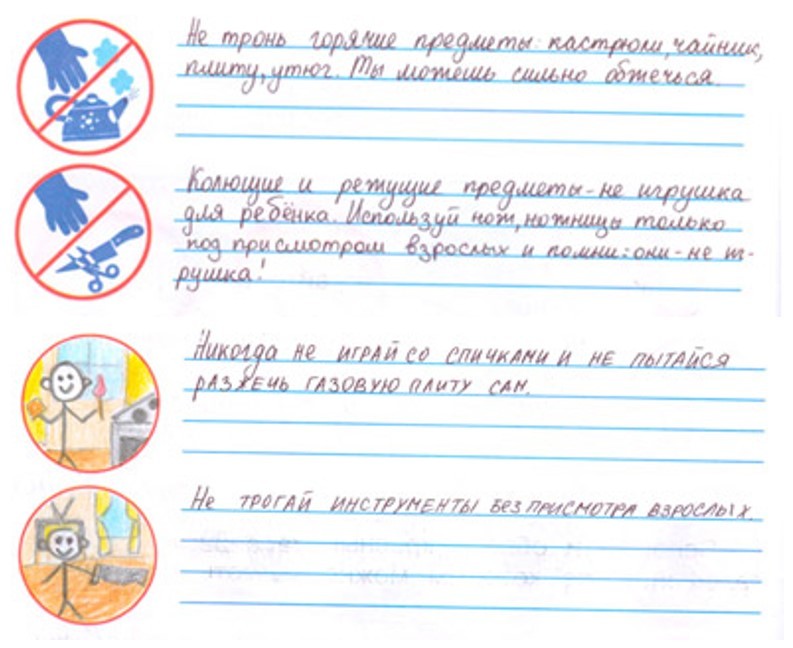 Не тронь горячие предметы: кастрюли, чайник,
плиту, утюг. Ты можешь сильно обжечься.
Колющие и режущие предметы - не игрушка
для ребёнка. Используй нож, ножницы только
под присмотром взрослых и помни: они - не иг-
рушка!
Никогда не ИГРАЙ СО СПИЧКАМИ И НЕ ПЫТАЙСЯ
РАЗЖЕЧЬ ГАЗОВУЮ ПЛИТУ САМ.
Не ТРОГАЙ ИНСТРУМЕНТЫ БЕЗ ПРИСМОТРА ВЗРОСЛЫХ.